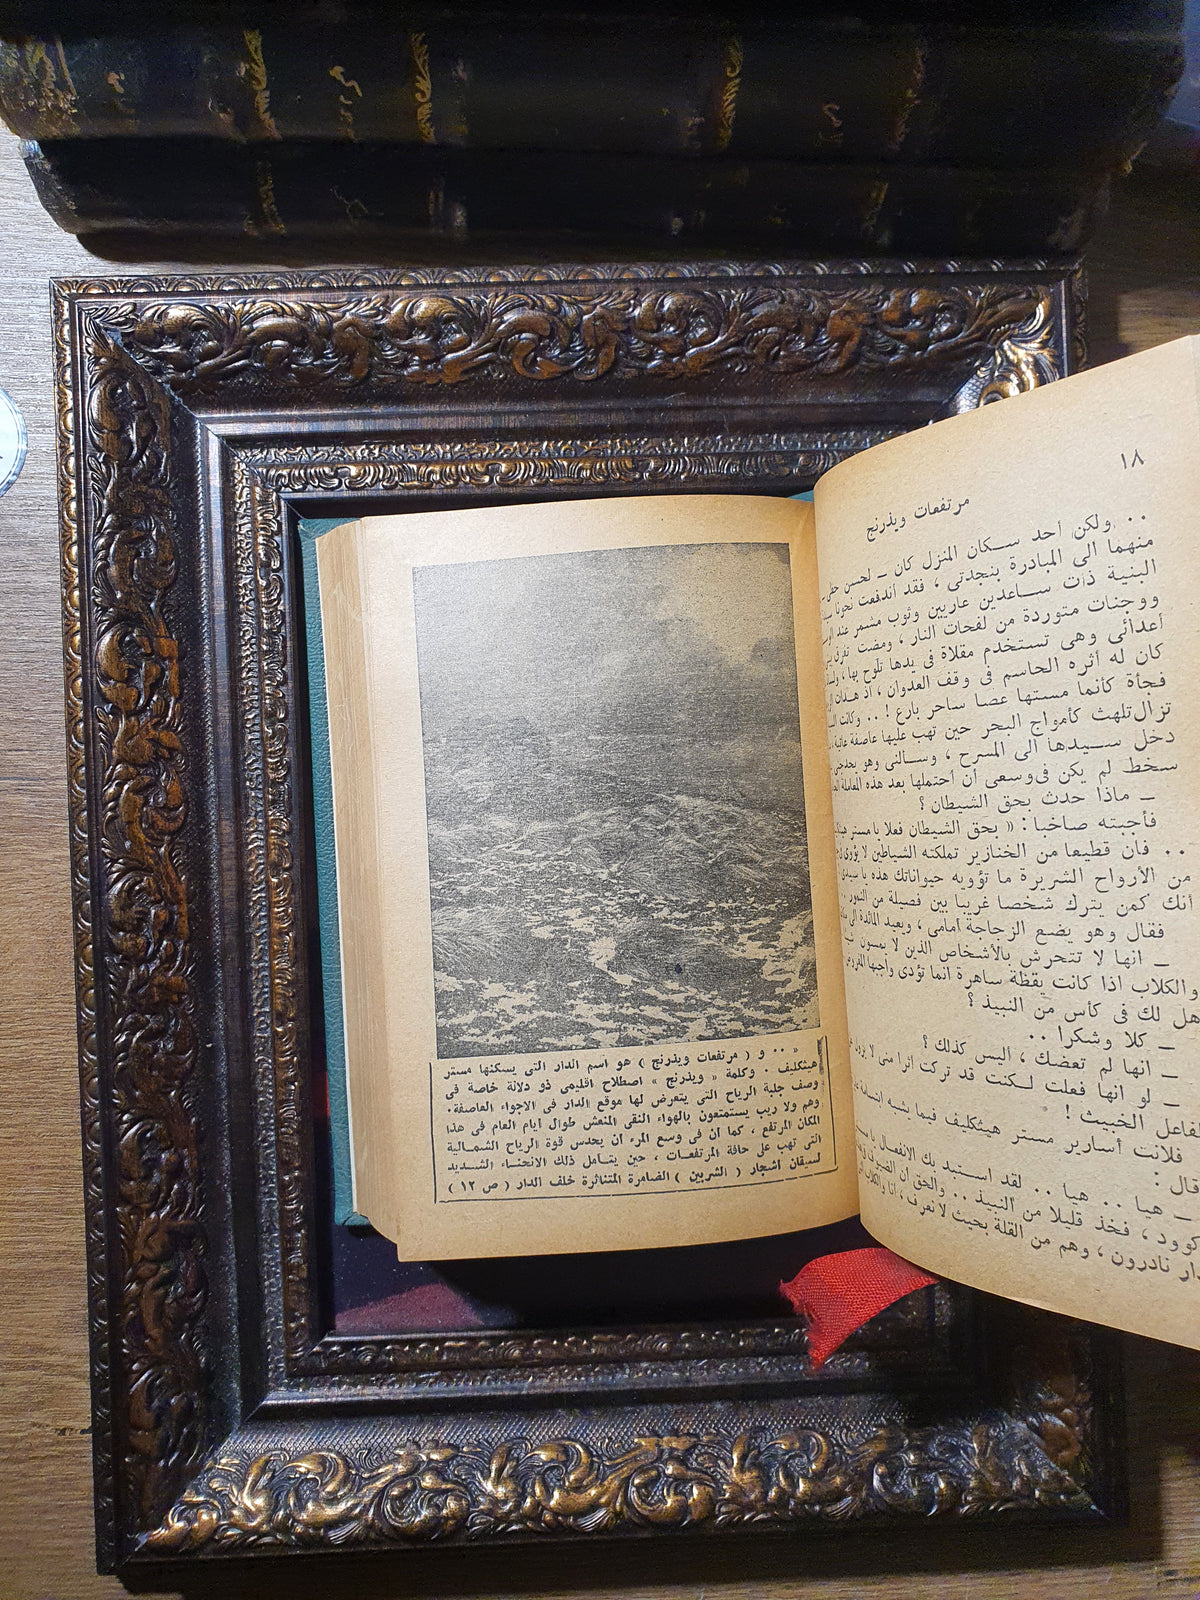 ١٨
مرتفعات ويذرنج
.. ولكن أحد سكان المنزل كان ــ لحسن حظى ــ
منهما الى المبادرة بنجدتى ، فقد اندفعت نحونا
البنية ذات ساعدين عاريين وثوب مشمر عند
ووجنات متوردة من لفحات النار ، ومضت تفرق بين
أعدائى وهى تستخدم مقلاة فى يدها تلوح بها ،
كان له أثره الحاسم فى وقف العدوان ، اذ هدأت
فجأة كأنما مستها عصا ساحر بارع ! .. وكانت
تزال تلهث كأمواج البحر حين تهب عليها عاصفة عاتية
دخل سيدها الى المسرح ، وسألنى وهو يحدجنى
سخط لم يكن فى وسعى أن أحتملها بعد هذه المعاملة
ــ ماذا حدث بحق الشيطان ؟
فأجبته صاخبا : « بحق الشيطان فعلا يا مستر
.. فان قطيعا من الخنازير تملكته الشياطين لا يؤوى
من الأرواح الشريرة ما تؤويه حيواناتك هذه يا سيدى
أنك كمن يترك شخصا غريبا بين فصيلة من النمور ..
فقال وهو يضع الزجاجة أمامى ، ويعيد المائدة الى
ــ انها لا تتحرش بالأشخاص الذين لا يمسون
والكلاب اذا كانت يقظة ساهرة انما تؤدى واجبها
هل لك فى كأس من النبيذ ؟
ــ كلا وشكرا ..
ــ انها لم تعضك ، أليس كذلك ؟
ــ لو انها فعلت لكنت قد تركت أثرا منى لا يزول
الفاعل الخبيث !
فلانت أسارير مستر هيثكليف فيما يشبه
قال :
ــ هيا .. هيا .. لقد استبد بك الانفعال يا
كوود ، فخذ قليلا من النبيذ .. والحق ان الضيوف
نادرون ، وهم من القلة بحيث لا نعرف ، أنا والكلاب
« .. و ( مرتفعات ويذرنج ) هو اسم الدار التى يسكنها مستر
هيثكليف . وكلمة « ويذرنج » اصطلاح اقليمى ذو دلالة خاصة فى
وصف جلبة الرياح التى يتعرض لها موقع الدار فى الاجواء العاصفة .
وهم ولا ريب يستمتعون بالهواء النقى المنعش طوال ايام العام فى هذا
المكان المرتفع ، كما أن فى وسع المرء أن يحدس قوة الرياح الشمالية
التى تهب على حافة المرتفعات ، حين يتأمل ذلك الانحناء الشديد
لسيقان أشجار ( الشربين ) الضامرة المتناثرة خلف الدار ( ص ١٢ )